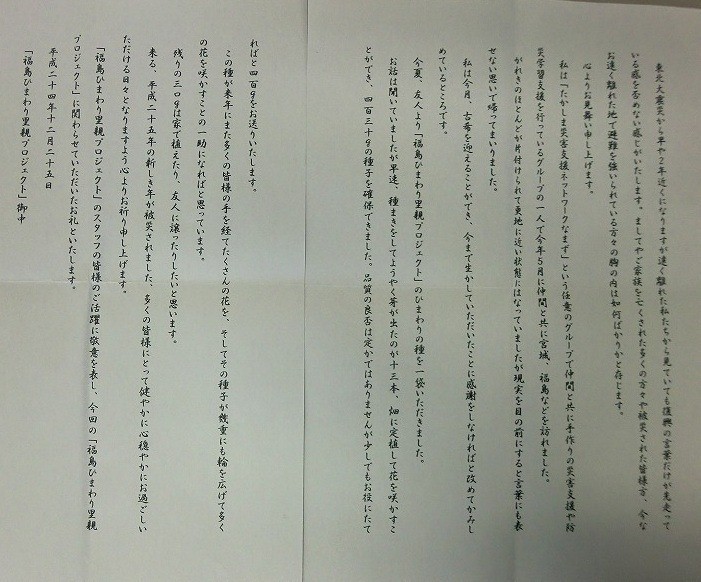 東北大震災から早や2年近くになりますが遠く離れた私たちから見ていても復興の言葉だけが先走って
いる感を否めない感じがいたします。ましてやご家族を亡くされた多くの方々や被災された皆様方、今な
お遠く離れた地で避難を強いられている方々の胸の内は如何ばかりかと存じます。
心よりお見舞い申し上げます。
私は「たかしま災害支援ネットワークなまず」という任意のグループで仲間と共に手作りの災害支援や防
災学習支援を行っているグループの一人で今年5月に仲間と共に宮城、福島などを訪れました。
がれきのほとんどが片付けられて更地に近い状態にはなっていましたが現実を目の前にすると言葉にも表
せない思いで帰ってまいりました。
私は今月、古希を迎えることができ、今まで生かしていただいたことに感謝をしなければと改めてかみし
めているところです。
今夏、友人より「福島ひまわり里親プロジェクト」のひまわりの種を一袋いただきました。
お話は聞いていましたが早速、種まきをしてようやく芽が出たのが十三本、畑に定植して花を咲かすこ
とができ、四百三十gの種子を確保できました。品質の良否は定かではありませんが少しでもお役にたて
ればと四百gをお送りいたします。
この種が来年にまた多くの皆様の手を経てたくさんの花を、そしてその種子が幾重にも輪を広げて多く
の花を咲かすことの一助になればと思っています。
残りの三〇gは家で植えたり、友人に譲ったりしたいと思います。
来る、平成二十五年の新しき年が被災されました、多くの皆様にとって健やかに心穏やかにお過ごしい
ただける日々となりますよう心よりお祈り申し上げます。
「福島ひまわり里親プロジェクト」のスタッフの皆様のご活躍に敬意を表し、今回の「福島ひまわり里親
プロジェクト」に関わらせていただいたお礼といたします。
平成二十四年十二月二十五日
「福島ひまわり里親プロジェクト」御中